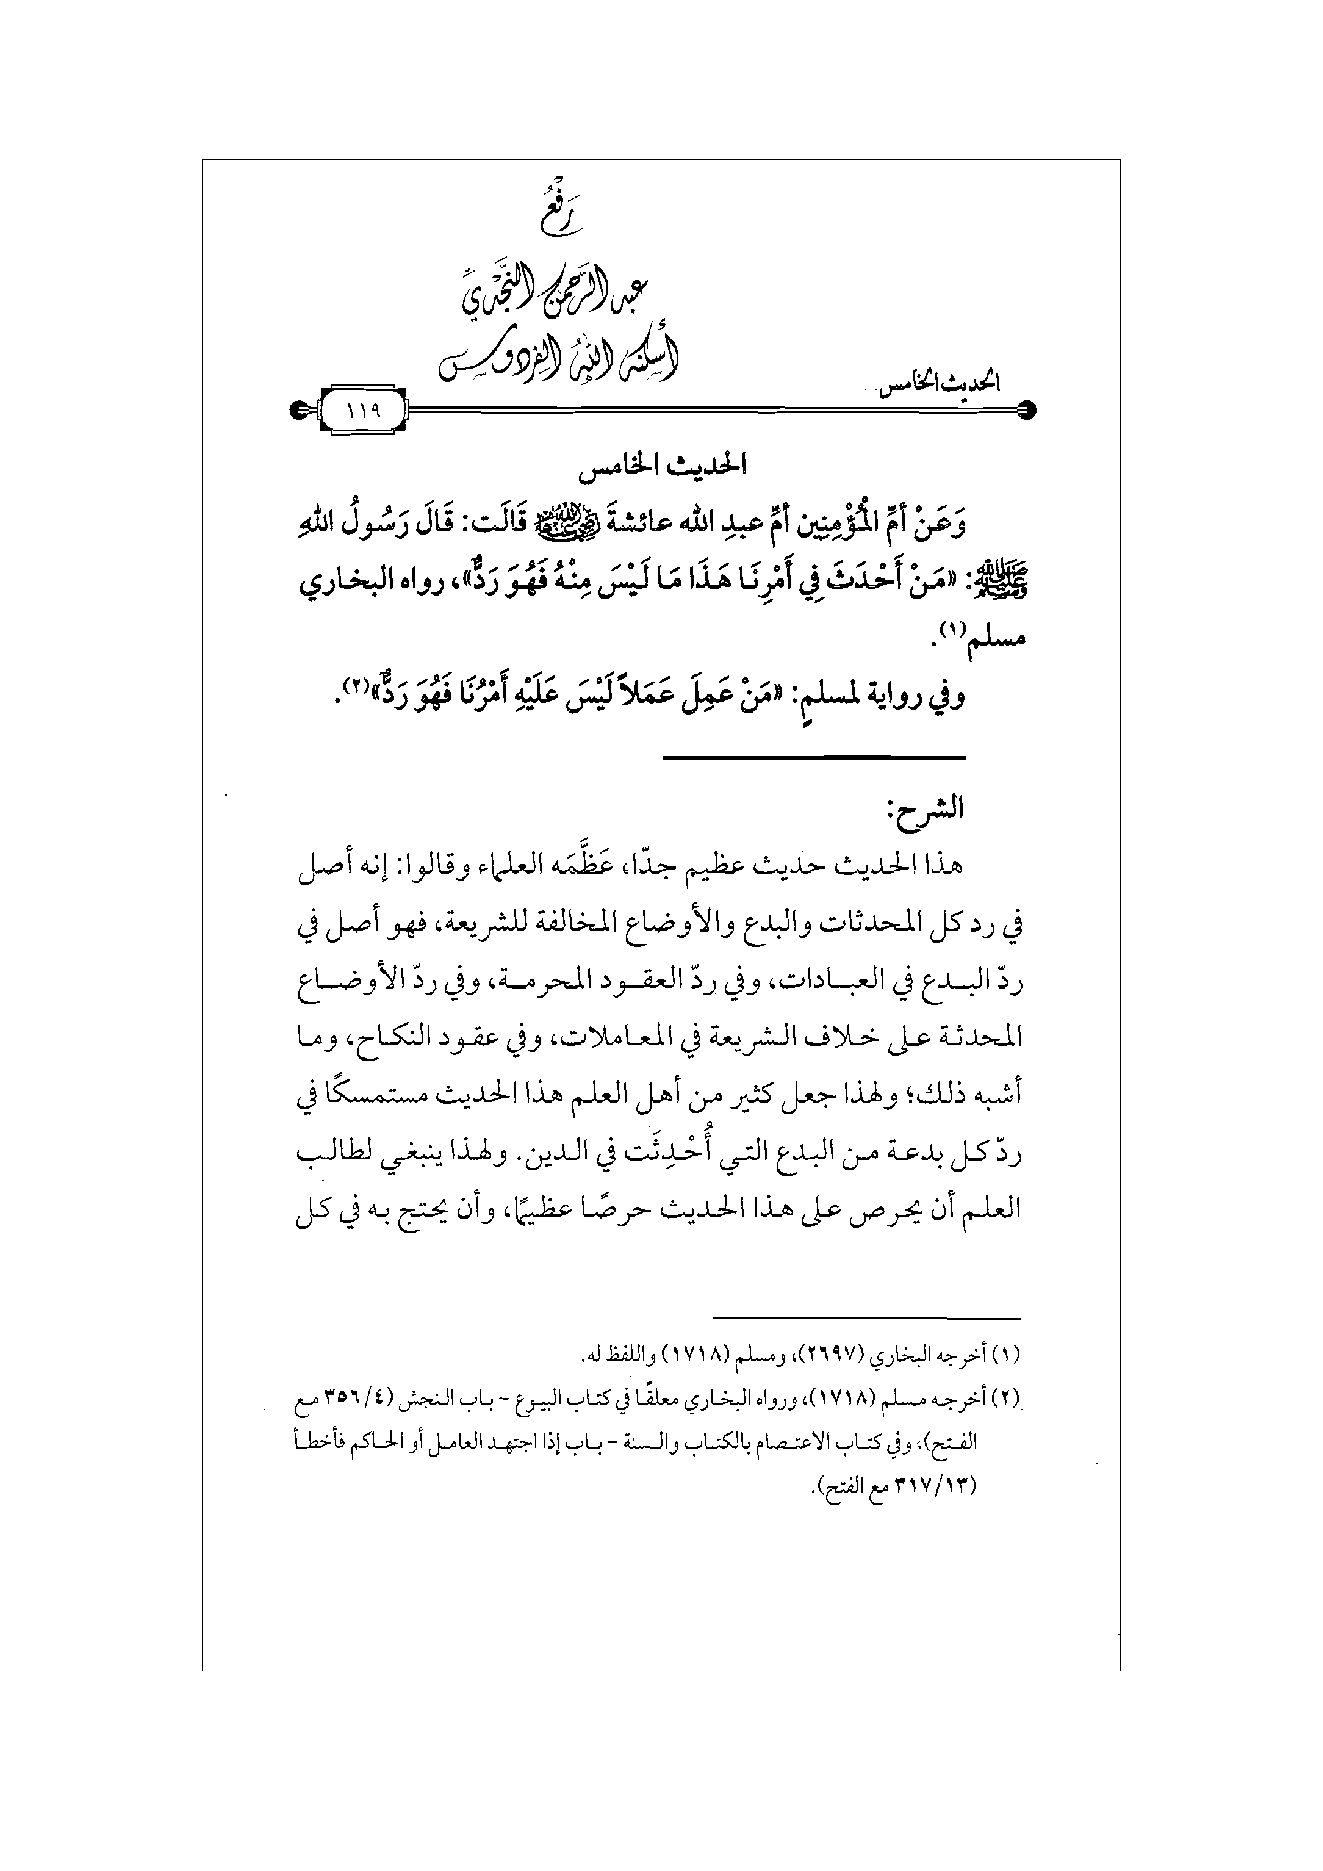 رَفْعُ
عبد الرَّحمن النَّجْديِّ
أسكنه اللهُ الفردوس
الحديث الخامس
١١٩
الحديث الخامس
وَعَنْ أمِّ المُؤْمِنِين أمِّ عبدِ الله عائشةَ رضي الله عنها قَالَت: قَالَ رَسُولُ اللهِ
ﷺ: «مَنْ أَحْدَثَ فِي أَمْرِنَا هَذَا مَا لَيْسَ مِنْهُ فَهُوَ رَدٌّ»، رواه البخاري
مسلم(١).
وفي رواية لمسلمٍ: «مَنْ عَمِلَ عَمَلاً لَيْسَ عَلَيْهِ أَمْرُنَا فَهُوَ رَدٌّ»(٢).
الشرح:
هذا الحديث حديث عظيم جدًّا، عَظَّمَه العلماء وقالوا: إنه أصل
في رد كل المحدثات والبدع والأوضاع المخالفة للشريعة، فهو أصل في
ردّ البدع في العبادات، وفي ردّ العقود المحرمة، وفي ردّ الأوضاع
المحدثة على خلاف الشريعة في المعاملات، وفي عقود النكاح، وما
أشبه ذلك؛ ولهذا جعل كثير من أهل العلم هذا الحديث مستمسكًا في
ردّ كل بدعة من البدع التي أُحْدِثَت في الدين. ولهذا ينبغي لطالب
العلم أن يحرص على هذا الحديث حرصًا عظيمًا، وأن يحتج به في كل
(١) أخرجه البخاري (٢٦٩٧)، ومسلم (١٧١٨) واللفظ له.
(٢) أخرجه مسلم (١٧١٨)، ورواه البخاري معلقًا في كتاب البيوع – باب النجش (٣٥٦/٤ مع
الفتح)، وفي كتاب الاعتصام بالكتاب والسنة – باب إذا اجتهد العامل أو الحاكم فأخطأ
(٣١٧/١٣ مع الفتح).